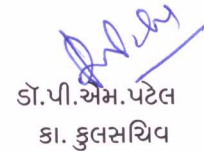 ડૉ.પી.એમ.પટેલ
કા. કુલસચિવ